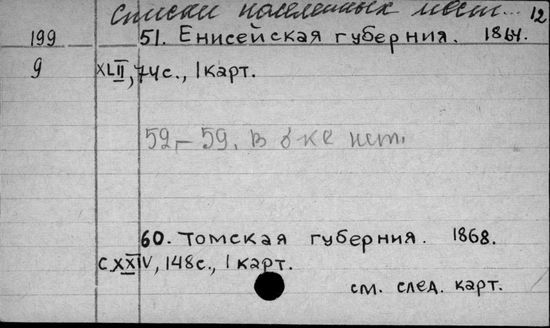 Списки населенных мест... 12
199 51. Енисейская губерния. 1864.
9 XLII, 74с., 1 карт.
52,-59. В б-ке нет.
60. Томская губерния. 1868.
CXXIV, 148с., 1 карт.
см. след. карт.